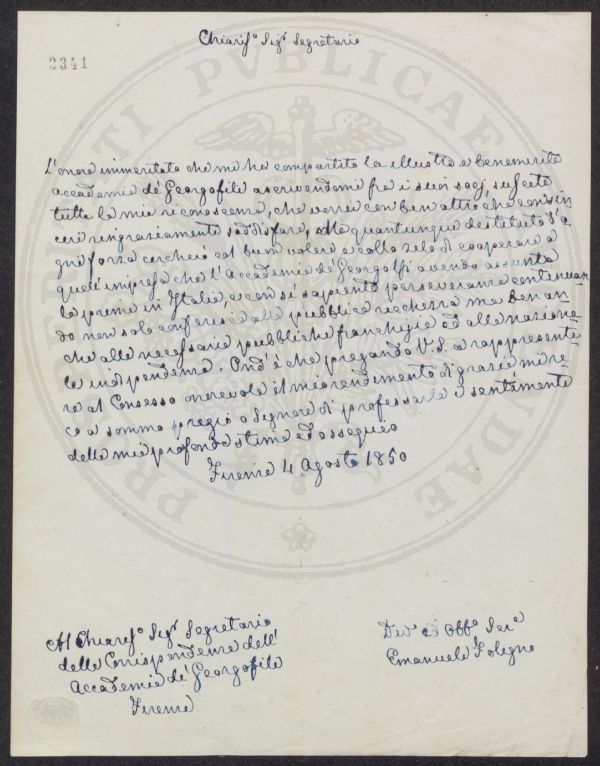 Chiaris.º Sig.r Segretario
2341
L'onore immeritato che mi ha compartito la illustre e benemerita
accademia de' Georgofili ascrivendomi fra i suoi socj, suscita
tutta la mia riconoscenza, che vorrei con ben altro che con sin
ceri ringraziamenti soddisfare, Ma quantunque destituto d'o
gni forza cercherò col buon volere e collo zelo di cooperare a
quell'impresa che l'Accademia de' Georgofi avendo assunta
la prima in Italia, e con sì sapiente perseveranza continuan
do non solo conferisce alla pubblica ricchezza ma ben an-
che alle necessarie pubbliche franchigie ed alla naziona-
le indipendenza. Ond'è che pregando V.S. a rappresenta-
re al Consesso onorevole il mio rendimento di grazie mi re-
co a sommo pregio o Signore di professarle i sentimenti
della mia profonda stima ed ossequio
Firenze 4 Agosto 1850
Al Chiaris.º Sig.r Segretario
della Corrispondenza dell'
Accademia de' Georgofili
Firenze
Dev.º ed Obb.º
Emanuele Foligno
PUBLICAE